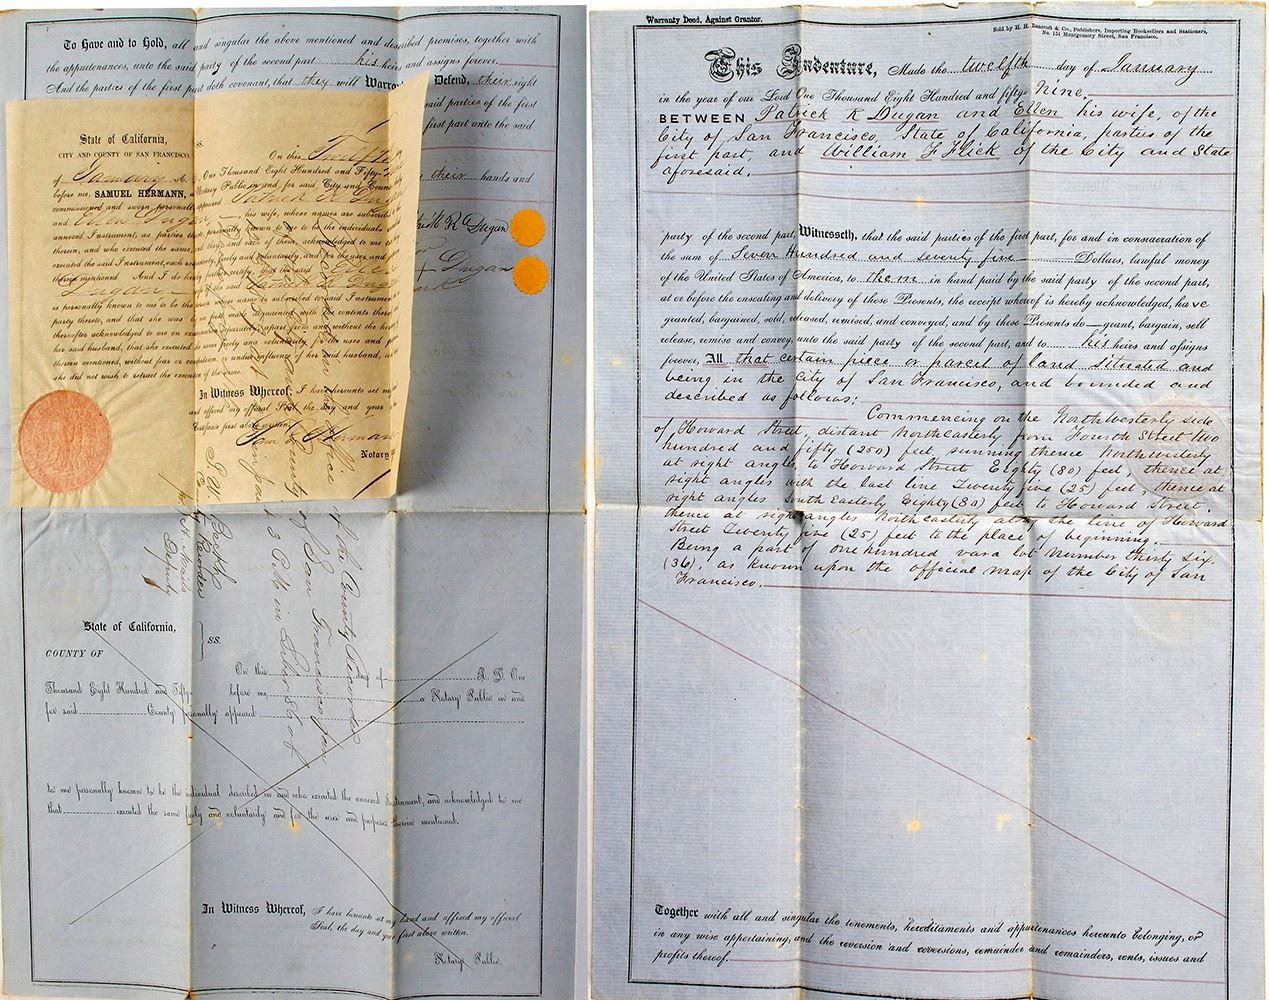 To Have and to Hold, all and singular the above mentioned and described premises, together with
the appurtenances, unto the said party of the second part his heirs and assigns forever.
And the parties of the first part doth covenant, that they will Warra Defend, their right
said parties of the first
first part unto the said
their hands and
R Dugan
Dugan
State of California,
CITY AND COUNTY OF SAN FRANCISCO.
ss.
On this Twelfth
of January A.
One Thousand Eight Hundred and Fifty-
before me, SAMUEL HERMANN, a Notary Public in and for said City and County
commissioned and sworn personally appeared Patrick R Dugan
and Ellen Dugan his wife, whose names are subscribed
annexed Instrument, as parties personally known to me to be the individuals
therein, and who executed the same, they and each of them, acknowledged to me
executed the said Instrument, each freely and voluntarily, and for the uses and
therein mentioned. And I do further certify, that the said Ellen
Dugan of the said Patrick R Dugan
is personally known to me to be the person whose name is subscribed to said Instrument
party thereto, and that she was by me first made acquainted with the contents thereof
thereafter acknowledged to me on examination separately apart from and without the hearing
her said husband, that she executed the same freely and voluntarily, for the uses and
therein mentioned, without fear or compulsion, or undue influence of her said husband, and
she did not wish to retract the execution of the same.
In Witness Whereof, I have hereunto set my
and affixed my official Seal the day and year
first above written.
Sam Hermann
Notary
of the County Recorder
of San Francisco
3 P.M. in Liber 86 of
County Recorder
Deputy
State of California,
ss.
COUNTY OF
On this day of A. D. One
Thousand Eight Hundred and Fifty- before me, a Notary Public in and
for said County personally appeared
to me personally known to be the individual described in and who executed the annexed Instrument, and acknowledged to me
that executed the same freely and voluntarily and for the uses and purposes therein mentioned.
In Witness Whereof, I have hereunto set my hand and affixed my official
Seal, the day and year first above written.
Notary Public.
Warranty Deed, Against Grantor.
Sold by H. H. Bancroft & Co., Publishers, Importing Booksellers and Stationers,
No. 151 Montgomery Street, San Francisco.
This Indenture, Made the twelfth day of January
in the year of our Lord One Thousand Eight Hundred and fifty- Nine
BETWEEN Patrick R Dugan and Ellen his wife, of the
City of San Francisco, State of California, parties of the
first part, and William F Flick of the City and State
aforesaid.
party of the second part, Witnesseth, that the said parties of the first part, for and in consideration of
the sum of Seven Hundred and seventy five Dollars, lawful money
of the United States of America, to them in hand paid by the said party of the second part,
at or before the ensealing and delivery of these Presents, the receipt whereof is hereby acknowledged, have
granted, bargained, sold, released, remised, and conveyed, and by these Presents do grant, bargain, sell
release, remise and convey, unto the said party of the second part, and to his heirs and assigns
forever, All that certain piece or parcel of land situated and
being in the City of San Francisco, and bounded and
described as follows:
Commencing on the Northwesterly side
of Howard Street, distant Northeasterly from Fourth Street two
hundred and fifty (250) feet, running thence Northwesterly
at right angles to Howard Street Eighty (80) feet, thence at
right angles with the last line Twenty five (25) feet, thence at
right angles South Easterly Eighty (80) feet to Howard Street,
thence at right angles North easterly along the line of Howard
Street Twenty five (25) feet to the place of beginning.
Being a part of one hundred vara lot number thirty six.
(36), as known upon the official map of the City of San
Francisco.
Together with all and singular the tenements, hereditaments and appurtenances hereunto belonging, or
in any wise appertaining, and the reversion and reversions, remainder and remainders, rents, issues and
profits thereof.